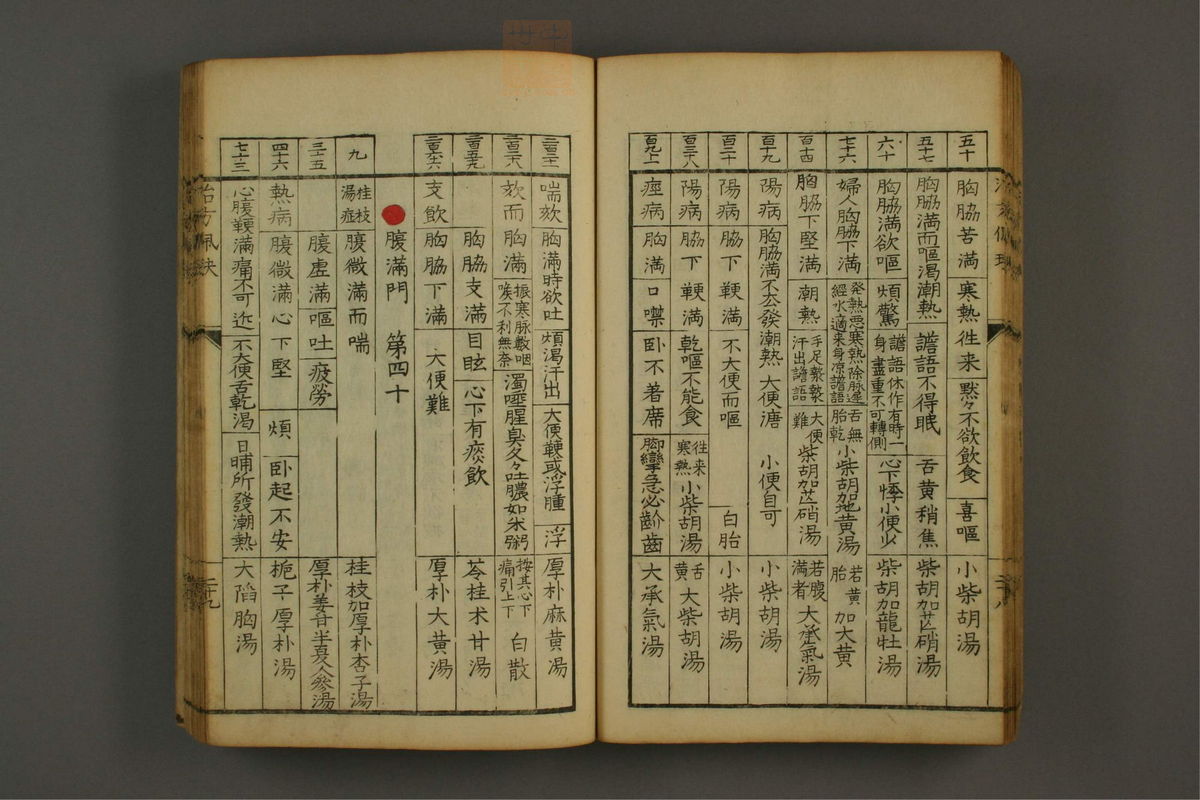 五十 胸脇苦満 寒熱徃来 黙々不欲飲食 喜嘔 小柴胡湯
五十七 胸脇満而嘔渇潮熱 譫語不得眠 舌黄稍焦 柴胡加芒硝湯
六十 胸脇満欲嘔 煩驚 譫語休作有時一身盡重不可轉側 心下悸小便少 柴胡加龍牡湯
七十六 婦人胸脇下満 發熱悪寒熱除脉遅経水適来身凉譫語 舌無胎乾 小柴胡加地黄湯 若黄胎 加大黄
百十四 胸脇下堅満 潮熱 手足漐漐汗出譫語 大便難 柴胡加芒硝湯 若腹満者 大承氣湯
百十九 陽病 胸脇満不去發潮熱 大便溏 小便自可 小柴胡湯
百二十 陽病 脇下鞕満 不大便而嘔 白胎 小柴胡湯
陽病 脇下鞕満 乾嘔不能食 徃来寒熱 小柴胡湯 舌黄 大柴胡湯
痙病 胸満 口噤 卧不著席 脚攣急必齘齒 大承氣湯
喘欬 胸満時欲吐 煩渇汗出 大便鞕或浮腫 浮 厚朴麻黄湯
欬而胸満 振寒脉數咽喉不利無奈 濁唾腥臭久々吐膿如米粥 按其心下痛引上下 白散
胸脇支満 目眩 心下有痰飲 苓桂朮甘湯
支飲 胸脇下満 大便難 厚朴大黄湯
腹満門 第四十
九 桂枝湯症 腹微満而喘 桂枝加厚朴杏子湯
三十五 腹虚満 嘔吐 疲勞 厚朴姜甘半夏人參湯
四十六 熱病 腹微満 心下堅 煩 卧起不安 梔子厚朴湯
七十三 心腹鞕満痛不可近 不大便舌乾渇 日晡所發潮熱 大陷胸湯
二十九